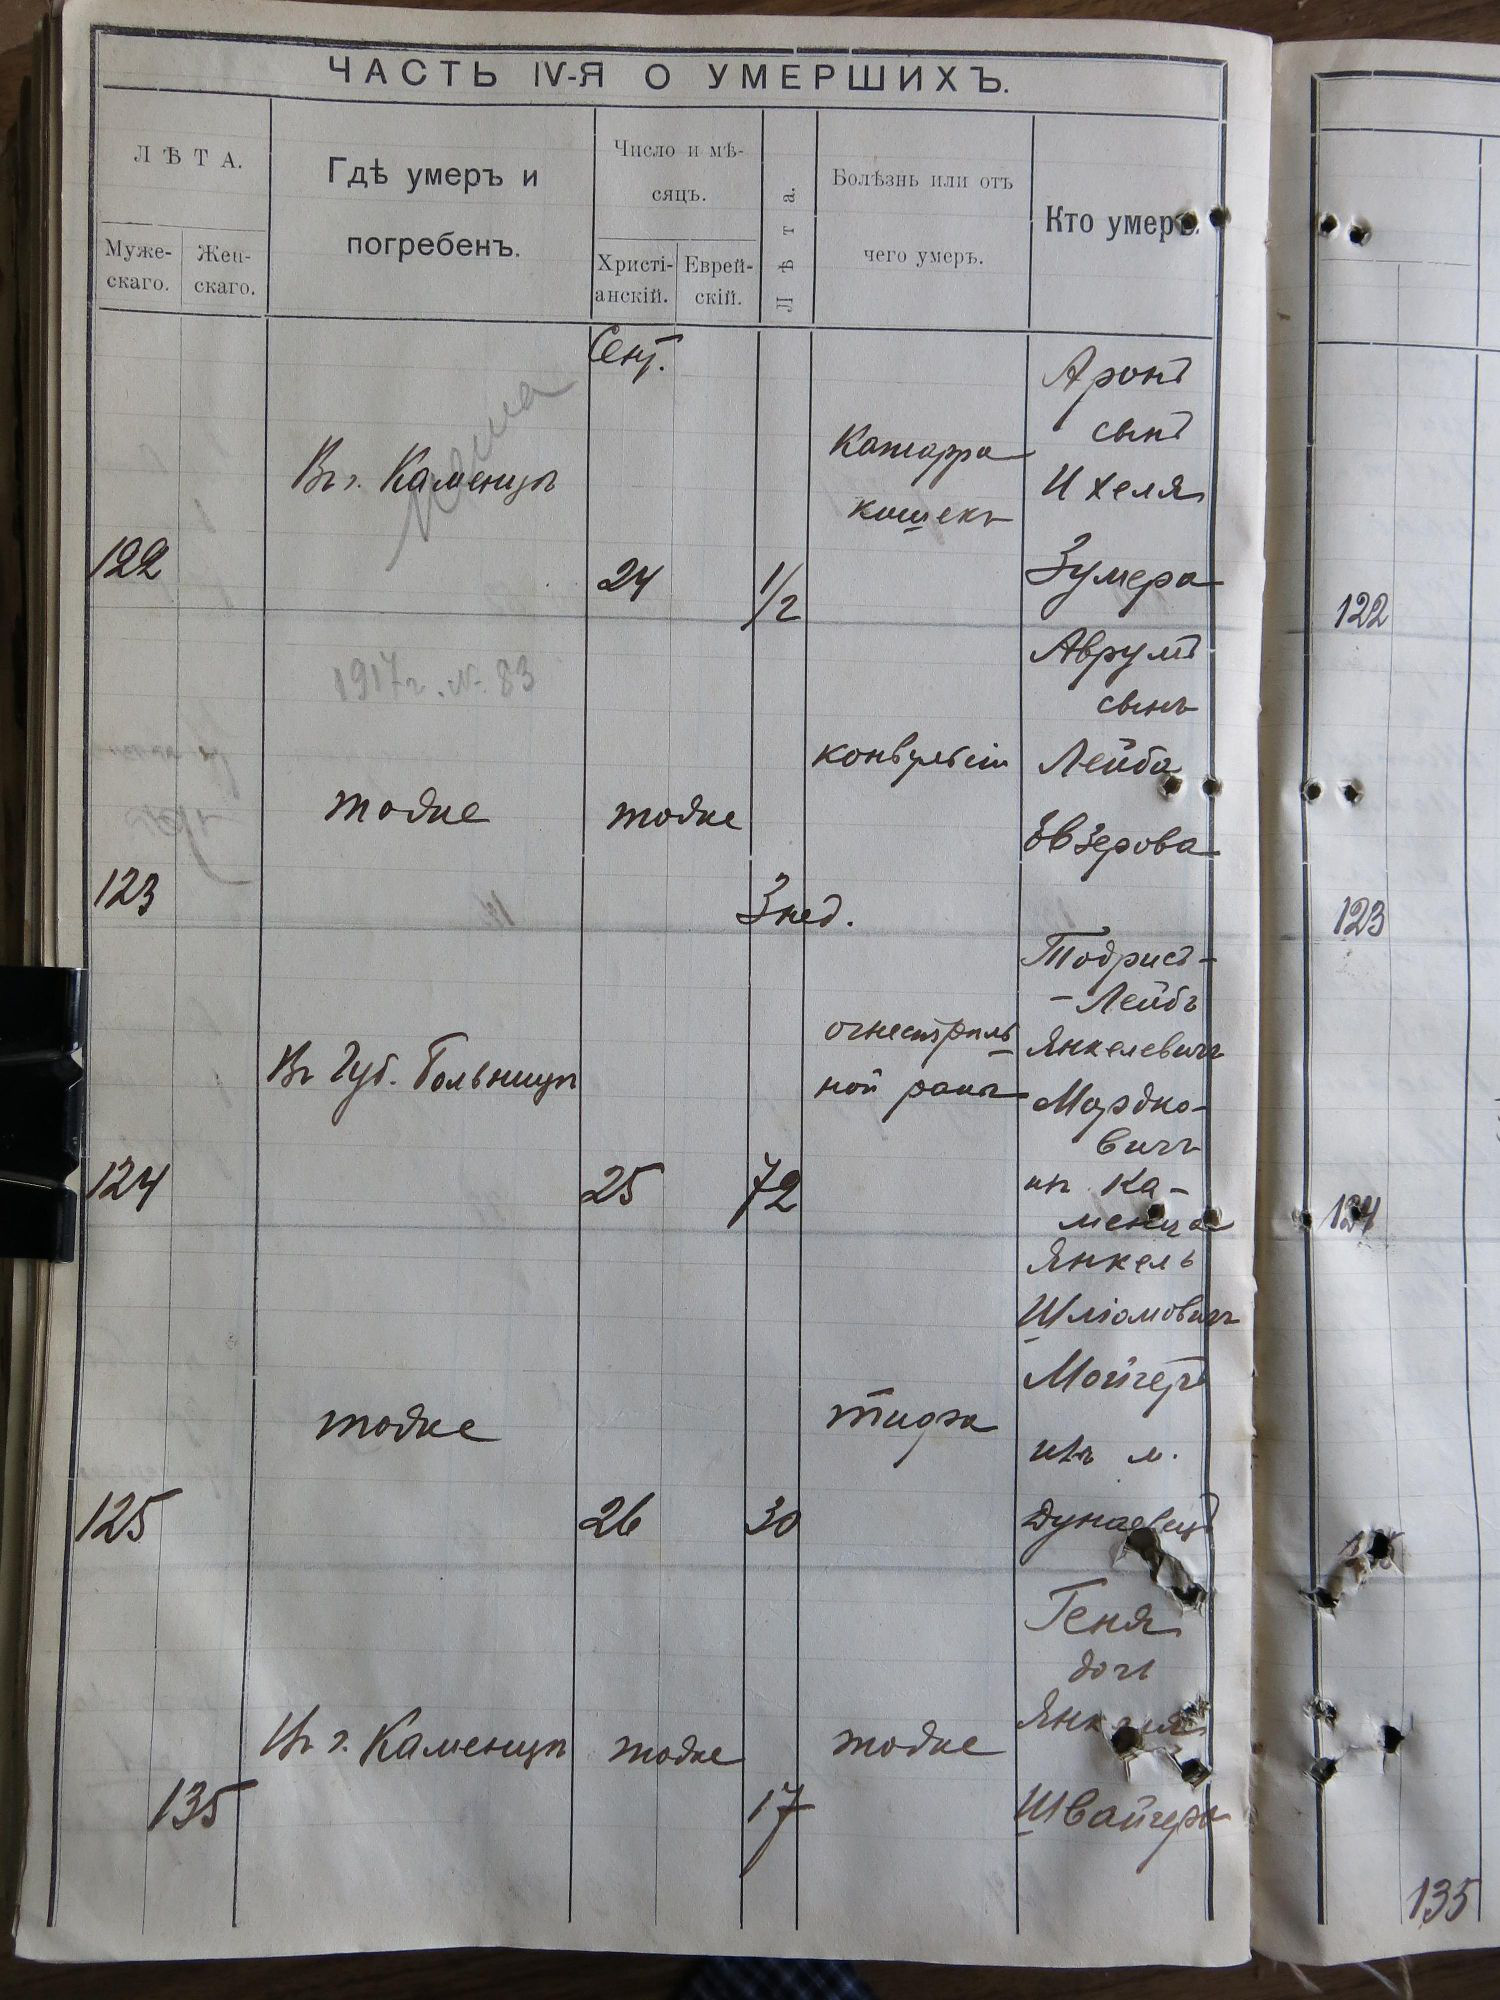 ЧАСТЬ IV-Я О УМЕРШИХЪ.
ЛѢТА.
Муже-
скаго.
Жен-
скаго.
Гдѣ умеръ и
погребенъ.
Число и мѣ-
сяцъ.
Христі-
анскій.
Еврей-
скій.
Лѣта.
Болѣзнь или отъ
чего умеръ.
Кто умеръ.
Сент.
122
Въ г. Каменцѣ
24
1/2
Катарра
кишекъ
Аронъ
сынъ
Ихеля
Зумера
122
1917 г. № 83
123
тоже
тоже
3 нед.
конвульсіи
Аврумъ
сынъ
Лейба
Эвзерова
123
124
Въ Губ. Больницѣ
25
72
огнестрѣль
ной раны
Тодрисъ-
-Лейбъ
Янкелевичъ
Мордко-
вичъ
изъ Ка-
менца
124
125
тоже
26
30
тифа
Янкель
Шліомовичъ
Мойгеръ
изъ м.
Дунаевцъ
135
Въ г. Каменцѣ
тоже
17
тоже
Геня
дочь
Янкеля
Швайгера
135